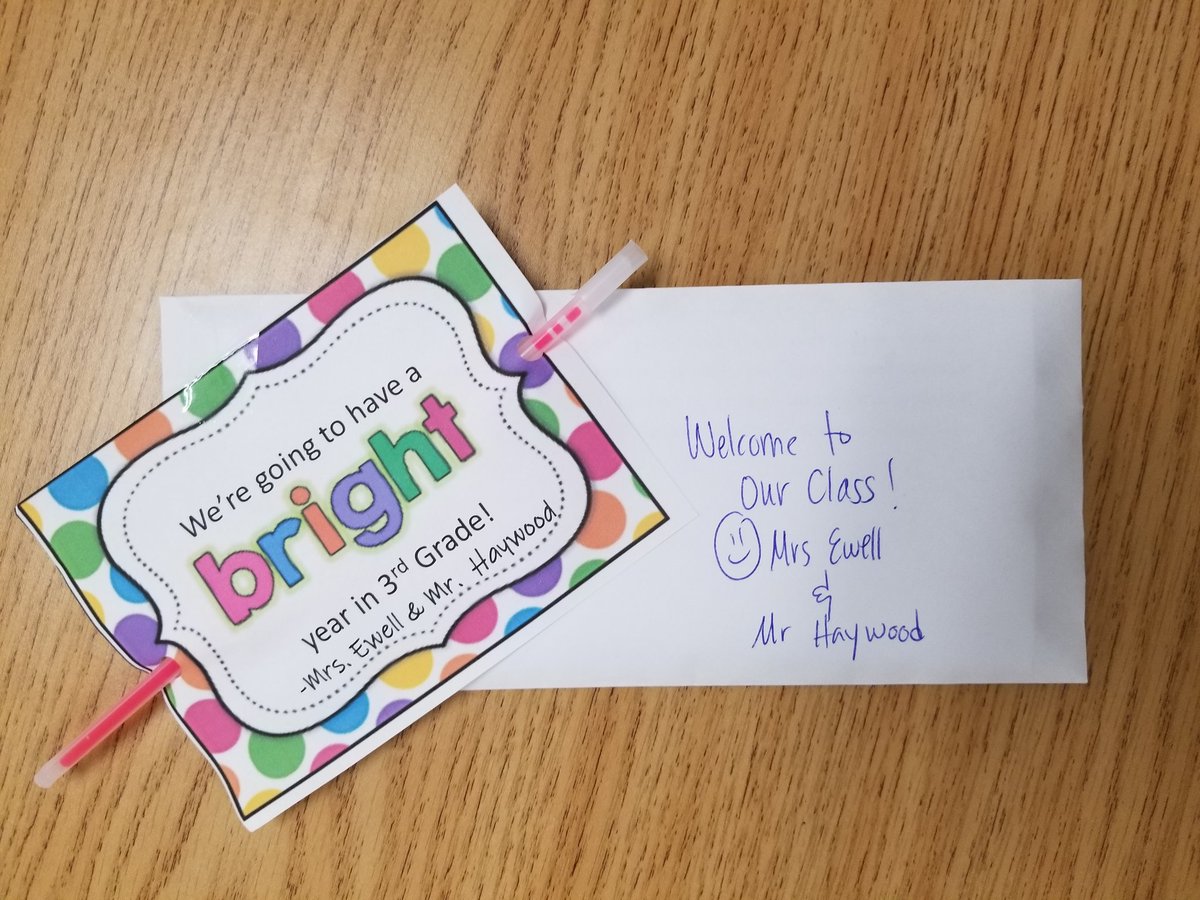 We're going to have a
bright
year in 3rd Grade!
-Mrs. Ewell & Mr. Haywood
Welcome to
Our Class!
Mrs Ewell
&
Mr Haywood